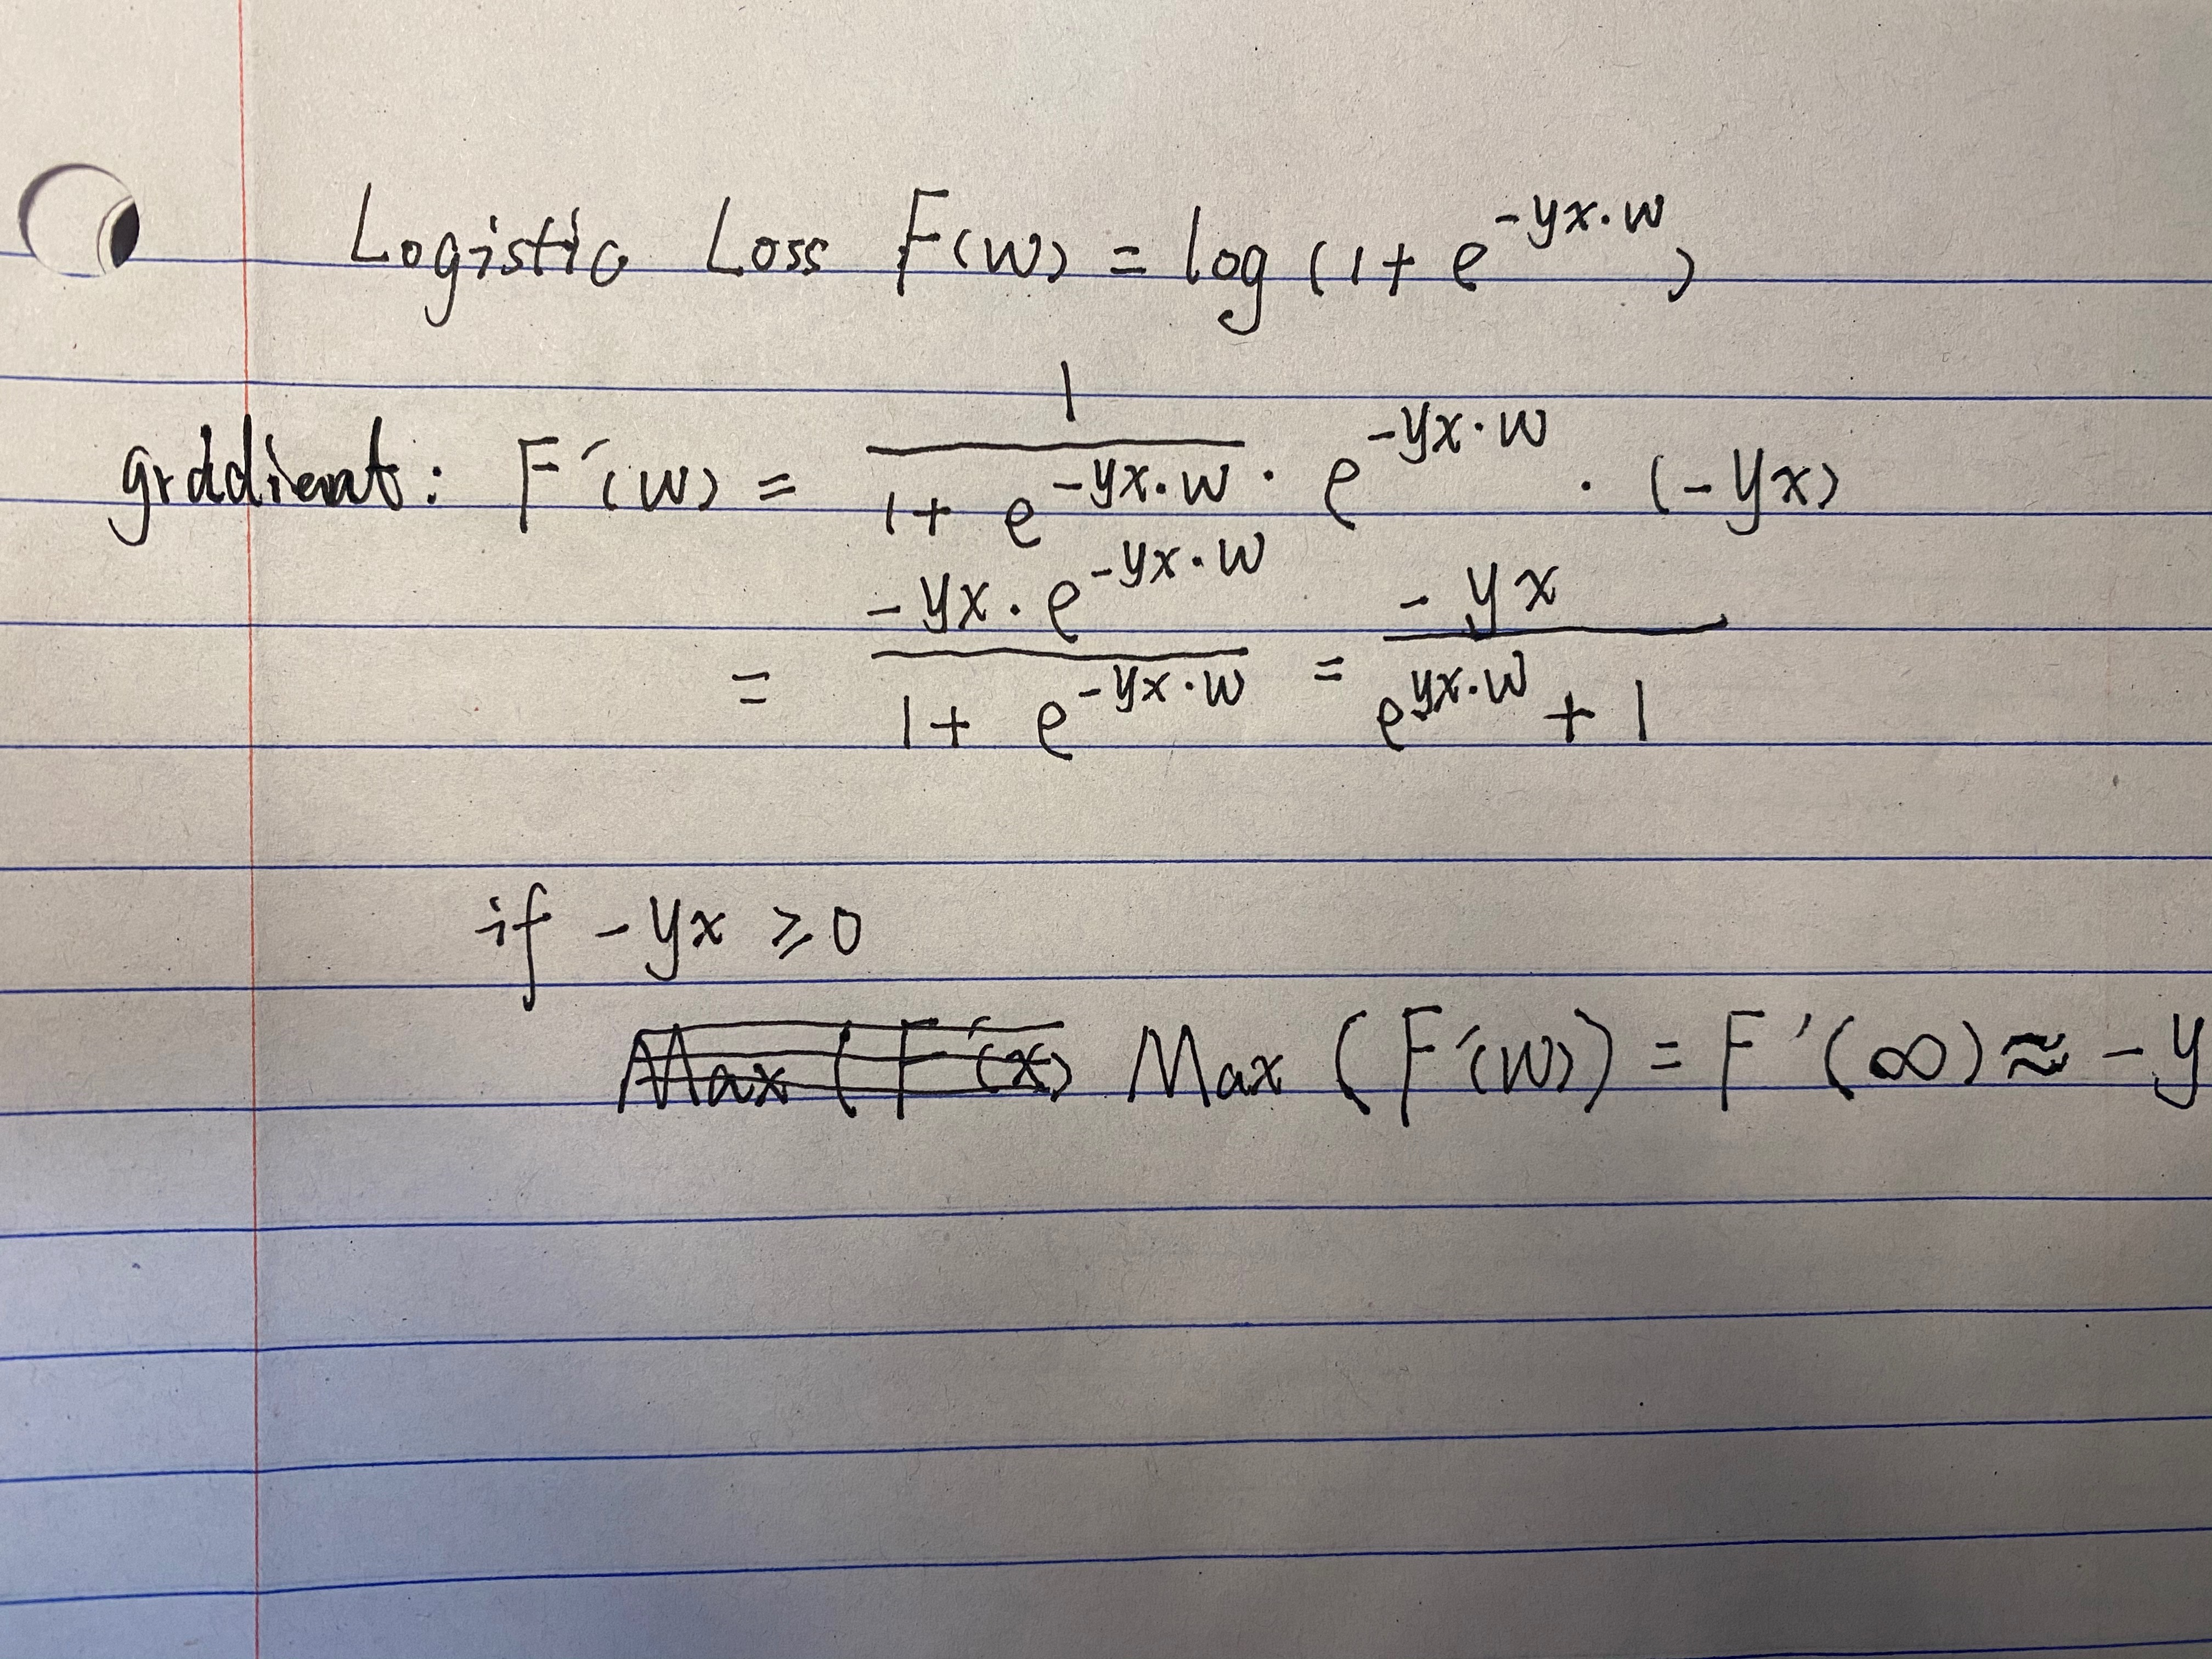 Logistic Loss F(w) = log (1 + e^{-yx·w})
grddient: F'(w) = \frac{1}{1 + e^{-yx·w}} · e^{-yx·w} · (-yx)
= \frac{-yx · e^{-yx·w}}{1 + e^{-yx·w}} = \frac{-yx}{e^{yx·w} + 1}
if -yx ≥ 0
Max (F'(w)) = F'(∞) ≈ -y